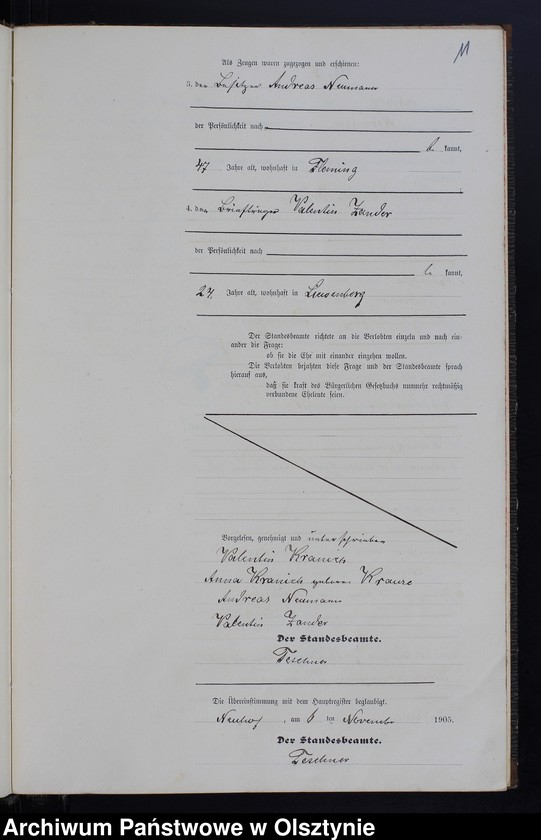 11
Als Zeugen waren zugezogen und erschienen:
3. der Besitzer Andreas Neumann
der Persönlichkeit nach
be kannt,
47 Jahre alt, wohnhaft in Fleming
4. der Briefträger Valentin Zander
der Persönlichkeit nach
be kannt,
27 Jahre alt, wohnhaft in
Der Standesbeamte richtete an die Verlobten einzeln und nach ein-
ander die Frage:
ob sie die Ehe mit einander eingehen wollen.
Die Verlobten bejahten diese Frage und der Standesbeamte sprach
hierauf aus,
daß sie kraft des Bürgerlichen Gesetzbuchs nunmehr rechtmäßig
verbundene Eheleute seien.
Vorgelesen, genehmigt und unterschrieben
Valentin Kranich
Anna Kranich geborene Krause
Andreas Neumann
Valentin Zander
Der Standesbeamte.
Teschner
Die Übereinstimmung mit dem Hauptregister beglaubigt.
Neuhof, am 6 ten November 1905.
Der Standesbeamte.
Teschner
Archiwum Państwowe w Olsztynie